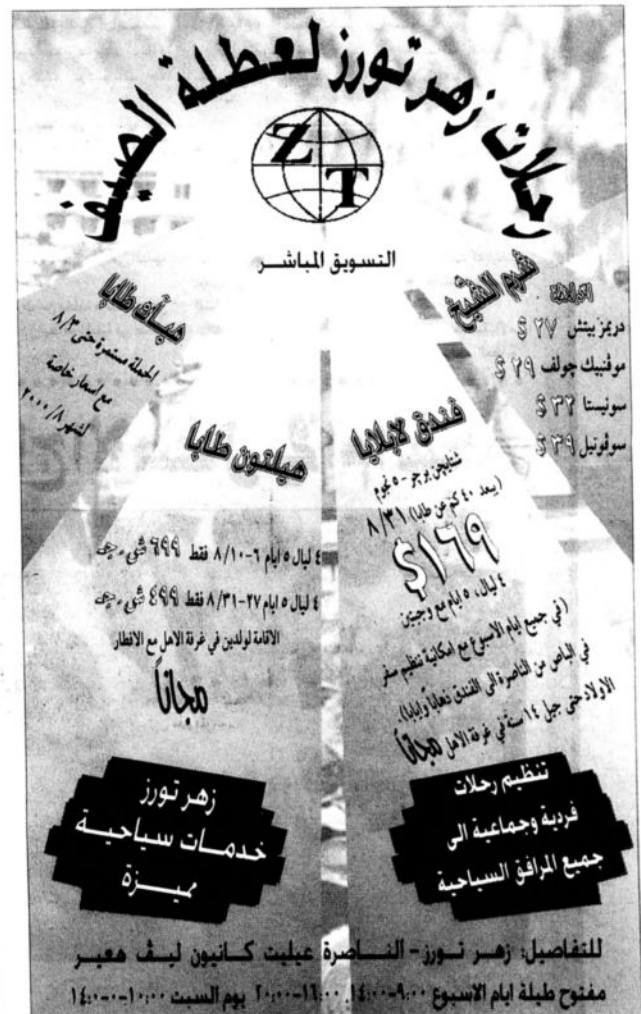 رحلات زهر تورز لعطلة الصيف
Z T
التسويق المباشر
شرم الشيخ
دريمز بيتش ٢٧ $
موڤنبيك جولف ٢٩ $
سونيستا ٣٢ $
سوڤوتيل ٣٩ $
هبات طابا
الحملة مستمرة حتى ٨/٣
مع اسعار خاصة
لشهر ٢٠٠٠/٨
فندق لابلايا
شتايجن برجر - ٥ نجوم
(يبعد ٤٠ كم عن طابا) ٨/٣١
$١٦٩
٤ ليال، ٥ ايام مع وجبتين
(في جميع ايام الاسبوع مع امكانية تنظيم سفر
في الباص من الناصرة الى الفندق ذهاباً وايابا).
الاولاد حتى جيل ١٤ سنة في غرفة الاهل مجاناً
هيلتون طابا
٤ ليال ٥ ايام ٦-٨/١٠ فقط ٦٩٩ ش.ج.
٤ ليال ٥ ايام ٢٧-٨/٣١ فقط ٤٩٩ ش.ج.
الاقامة لولدين في غرفة الاهل مع الافطار
مجاناً
تنظيم رحلات
فردية وجماعية الى
جميع المرافق السياحية
زهر تورز
خدمات سياحية
مميزة
للتفاصيل: زهر تورز - الناصرة عيليت كانيون ليڤ هعير
مفتوح طيلة ايام الاسبوع ٩:٠٠-١٤:٠٠، ١٦:٠٠-٢٠:٠٠ يوم السبت ١٠:٠٠-١٤:٠٠